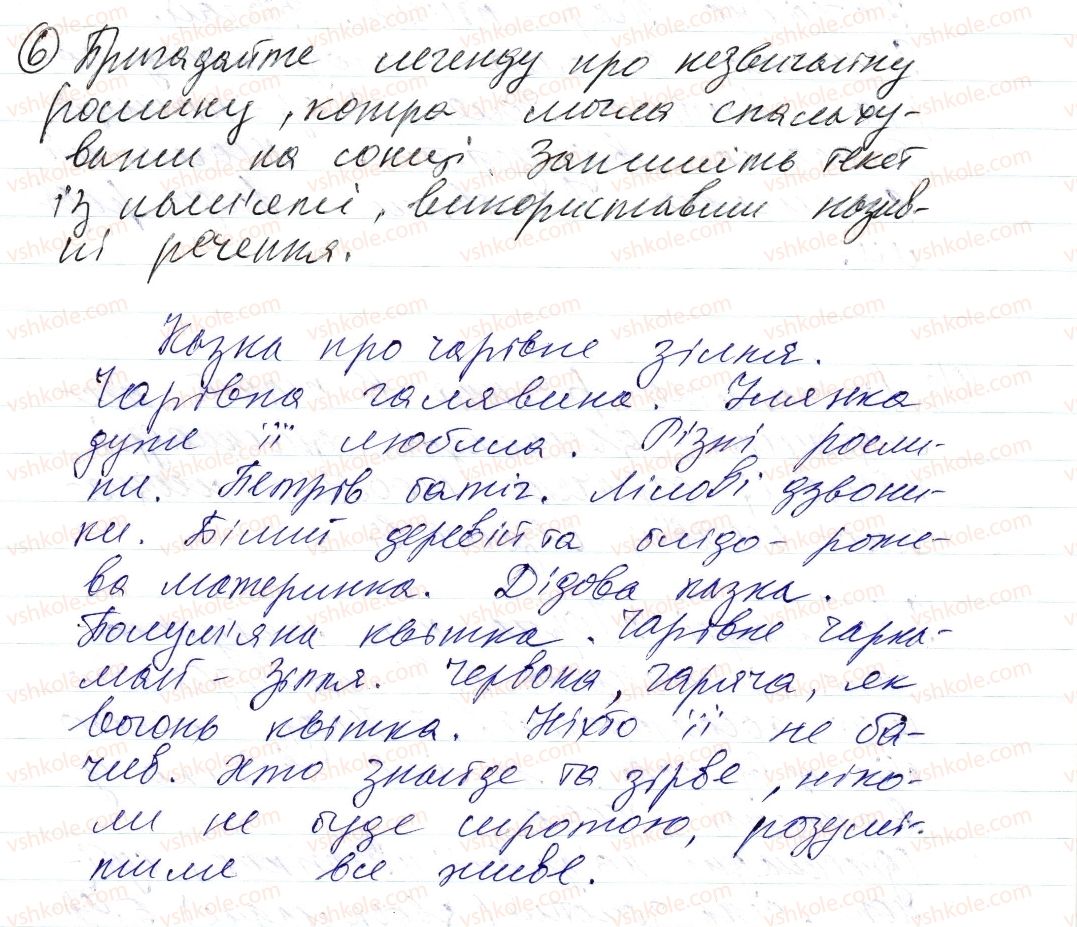 6 Пригадайте легенду про незвичайну
рослину, котра могла спалаху-
вати на сонці. Запишіть текст
із пам'яті, використавши назив-
ні речення.
Казка про чарівне зілля.
Чарівна галявина. Улянка
дуже її любила. Різні росли-
ни. Петрів батіг. Лілові дзвони-
ки. Білий деревій та блідо-роже-
ва материнка. Дідова казка.
Полум'яна квітка. Чарівне чарка-
май-зілля. Червона, гаряча, як
вогонь квітка. Ніхто її не ба-
чив. Хто знайде та зірве, ніко-
ли не буде сиротою, розумі-
тиме все живе.